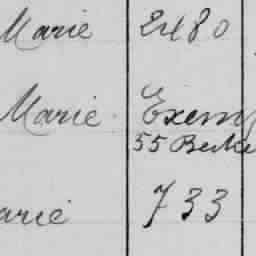 Marie 2480
Marie Exem
55 Berke
arie 733